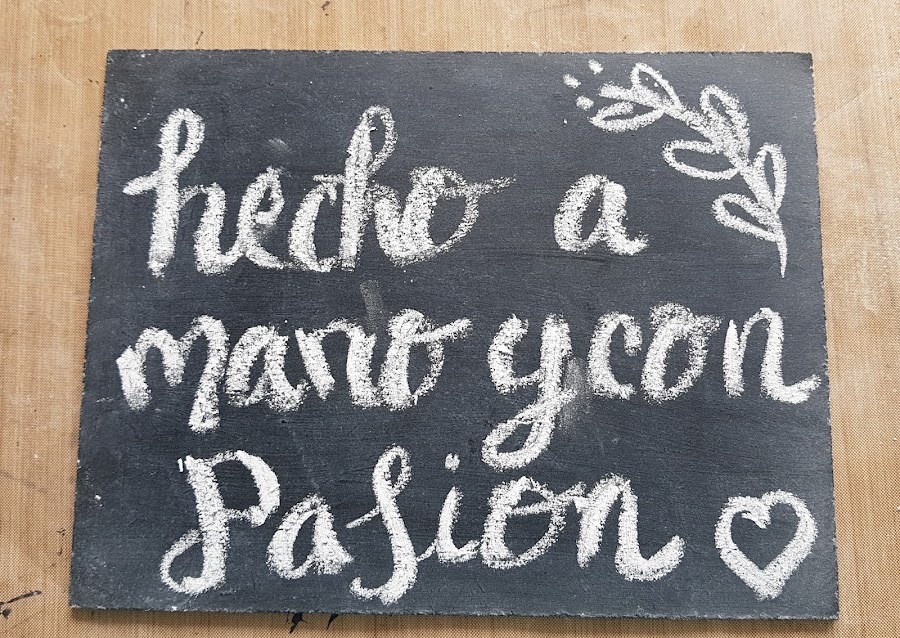 hecho a
mano y con
Pasion